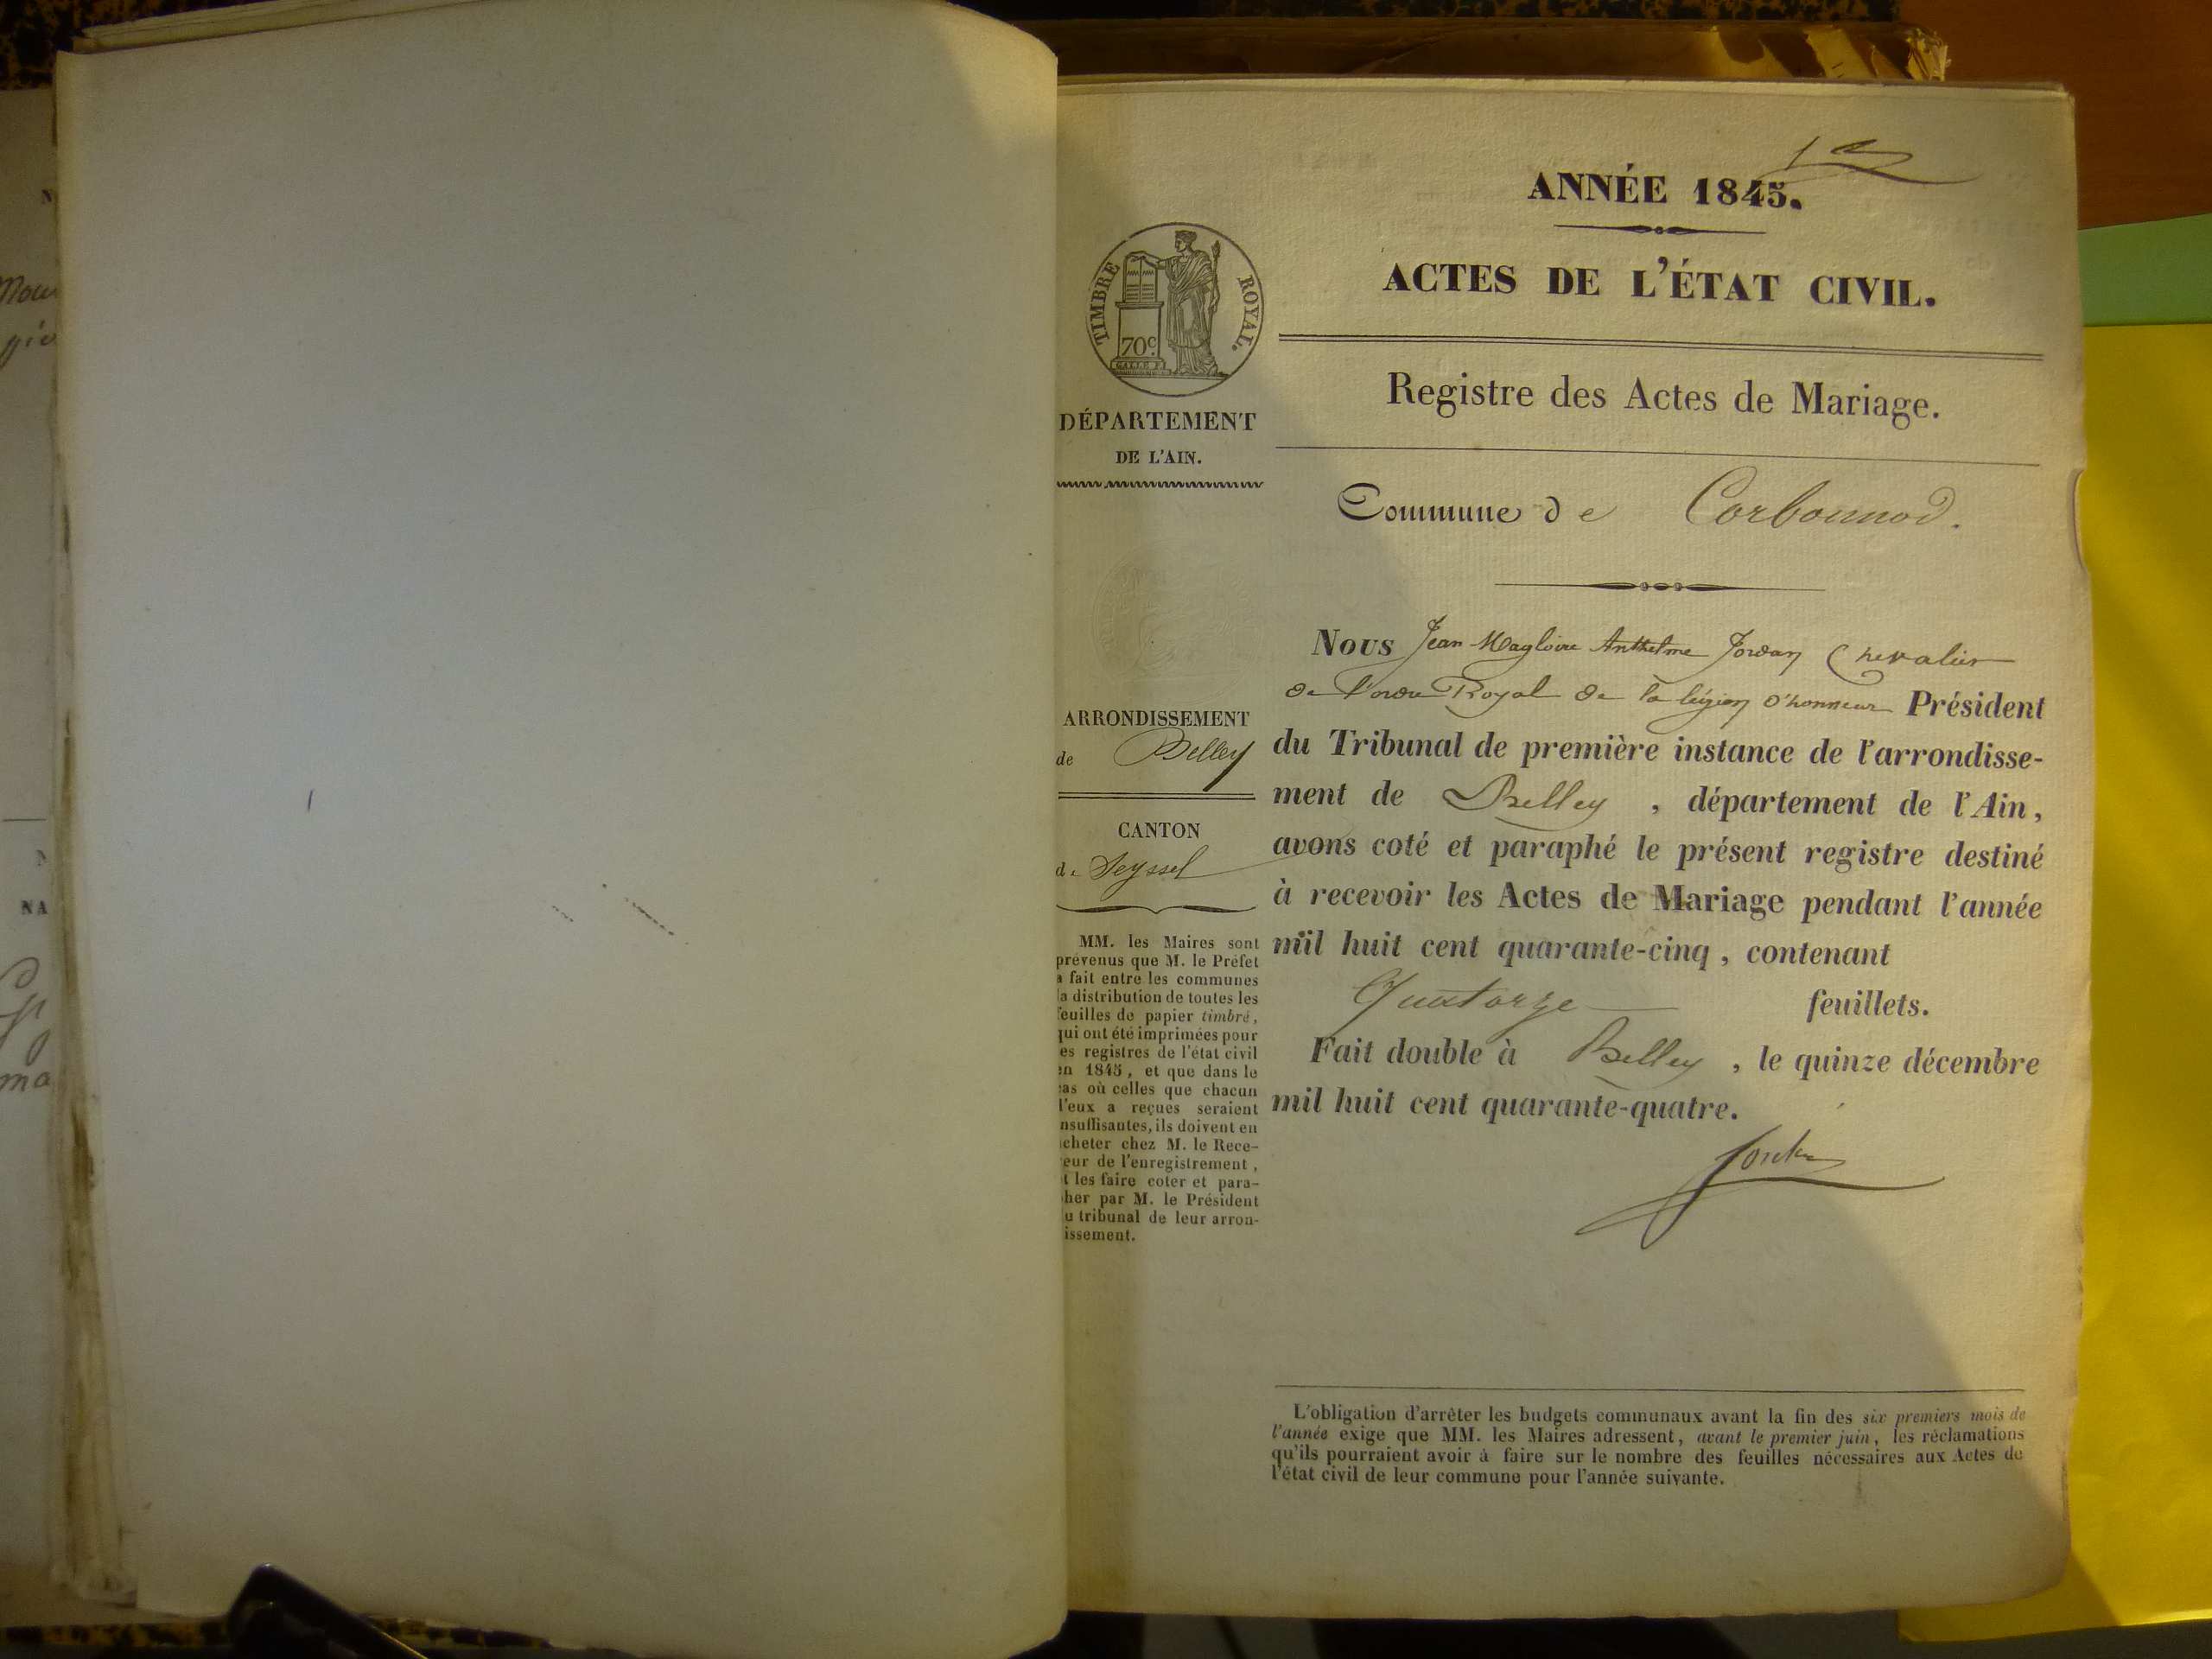 1er
ANNÉE 1845.
ACTES DE L'ÉTAT CIVIL.
Registre des Actes de Mariage.
Commune de Corbonnod.
TIMBRE ROYAL.
70c.
DÉPARTEMENT
DE L'AIN.
ARRONDISSEMENT
de Belley
CANTON
de Seyssel
MM. les Maires sont
prévenus que M. le Préfet
a fait entre les communes
la distribution de toutes les
feuilles de papier timbré,
qui ont été imprimées pour
es registres de l'état civil
en 1845, et que dans le
cas où celles que chacun
d'eux a reçues seraient
nsuffisantes, ils doivent en
cheter chez M. le Rece-
eur de l'enregistrement,
t les faire coter et para-
her par M. le Président
u tribunal de leur arron-
issement.
Nous Jean Magloire Anthelme Jordan Chevalier
de l'ordre Royal de la légion d'honneur Président
du Tribunal de première instance de l'arrondisse-
ment de Belley, département de l'Ain,
avons coté et paraphé le présent registre destiné
à recevoir les Actes de Mariage pendant l'année
mil huit cent quarante-cinq, contenant
Quatorze feuillets.
Fait double à Belley, le quinze décembre
mil huit cent quarante-quatre.
L'obligation d'arrêter les budgets communaux avant la fin des six premiers mois de
l'année exige que MM. les Maires adressent, avant le premier juin, les réclamations
qu'ils pourraient avoir à faire sur le nombre des feuilles nécessaires aux Actes de
l'état civil de leur commune pour l'année suivante.